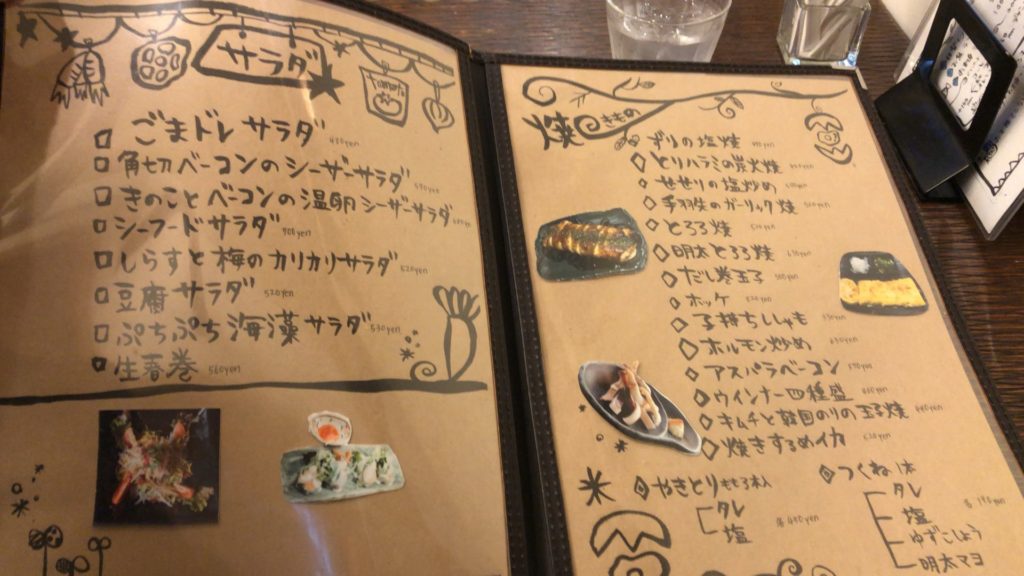 サラダ
ごまドレサラダ
角切ベーコンのシーザーサラダ
きのことベーコンの温卵シーザーサラダ
シーフードサラダ 900yen
しらすと梅のカリカリサラダ 620yen
豆腐サラダ 520yen
ぷちぷち海藻サラダ 530yen
生春巻 560yen
焼きもの
ずりの塩焼
とりハラミの炭火焼
せせりの塩炒め
手羽先のガーリック焼
とろろ焼
明太とろろ焼
だし巻玉子
ホッケ
子持ちししゃも
ホルモン炒め
アスパラベーコン
ウインナー四種盛
キムチと韓国のりの玉子焼
焼きするめイカ
やきとり もも3本入
タレ
塩
各400yen
つくね1本
タレ
塩
ゆずこしょう
明太マヨ
各190yen